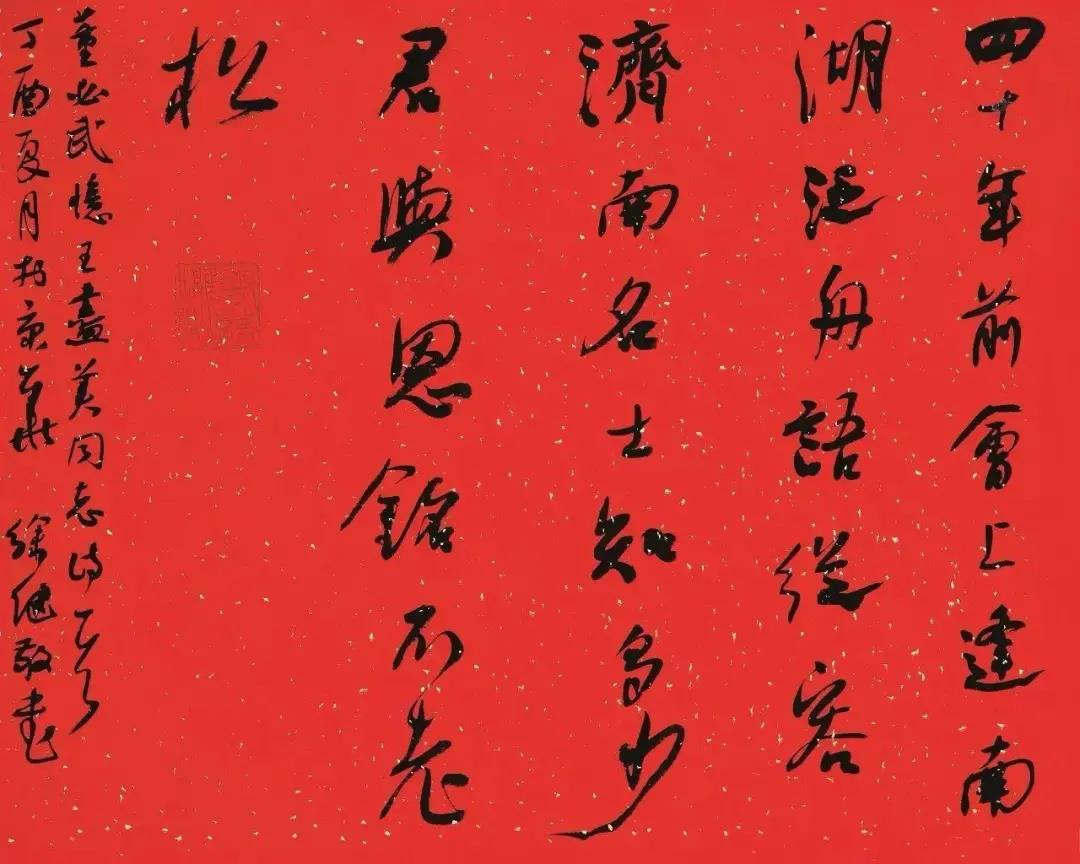 四十年前會上逢南
湖泛舟語從容
濟南名士知多少
君與恩銘不老
松
董必武憶王盡美同志诗一首
丁酉夏月於京華 徐继敬書